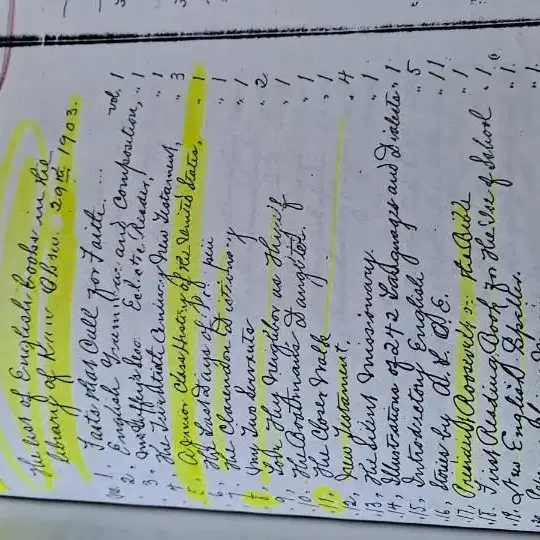 The list of English books in the
library of Raw Obsu 29th 1903.
No. 1. Facts that Call for Faith .... vol. 1
" 2. English Grammar and Composition, " 1
" 3. McGuffey's New Eclectic Reader, " 1
" 4. The Twentieth Century New Testament, " 3
" 5. A Junior Class History of the United States, " 1
" 6. The Last Days of " 1
" 7. The Clarendon Dictionary " 1
" 8. My Two Servants " 2
" 9. Love Thy Neighbor as Thyself " 1
" 10. The Boatman's Daughter. " 1
" 11. The Closer Walk " 1
" 12. New Testament, " 4
" 13. The Silent Missionary. " 1
" 14. Illustrations of 242 Languages and Dialects " 1
" 15. Introductory English " 5
" 16. Stories by A. L. O. E. " 11
" 17. President Roosevelt on the Bible " 1
" 18. First Reading Book for the Use of School " 1
" 19. New English Speller. " 1